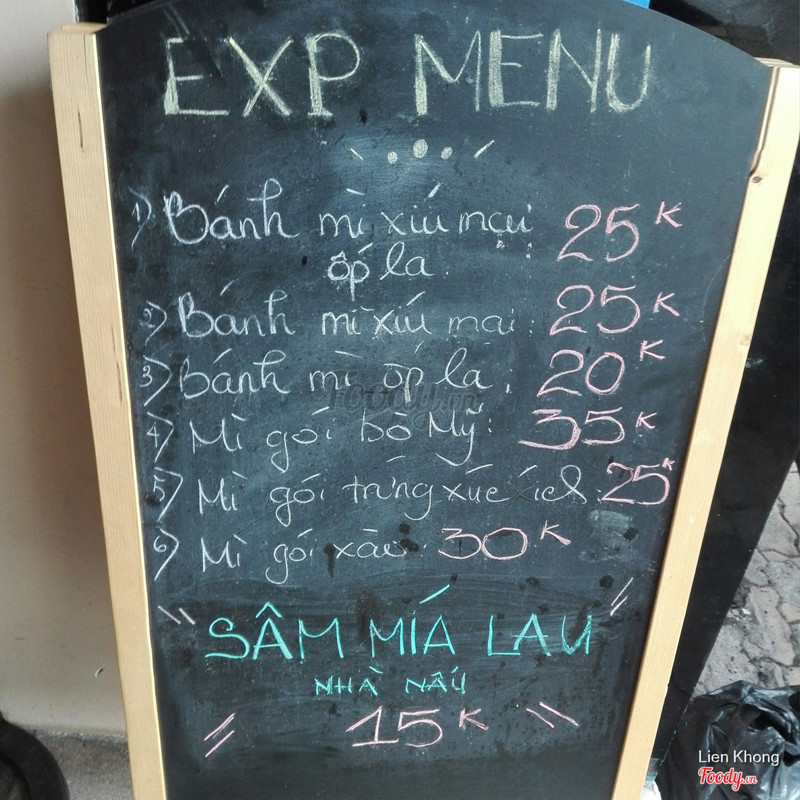 EXP MENU
1) Bánh mì xíu mại
ốp la : 25K
2) Bánh mì xíu mại : 25K
3) Bánh mì ốp la : 20K
4) Mì gói bò Mỹ : 35K
5) Mì gói trứng xúc xích : 25K
6) Mì gói xào : 30K
SÂM MÍA LAU
NHÀ NẤU
15K
Foody.vn
Lien Khong
Foody.vn